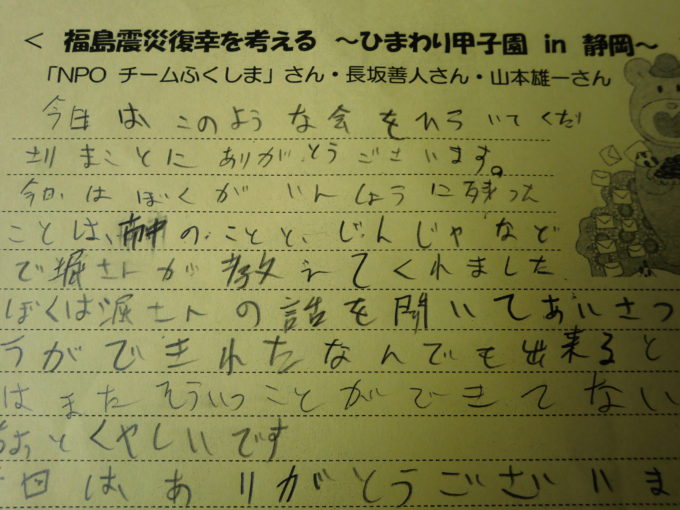 < 福島震災復幸を考える ～ひまわり甲子園 in 静岡～
「NPO チームふくしま」さん・長坂善人さん・山本雄一さん
今日は、このような会をひらいてくださ
りまことにありがとうございます。
今日はぼくがいんしょうに残った
ことは、 のことと、じんじゃなど
で堀さんが教えてくれました
ぼくは さんの話を聞いてあいさつ
がができれたなんでも出来ると
はまたそういうことができてない
っとくやしいです
日は、ありがとうございま